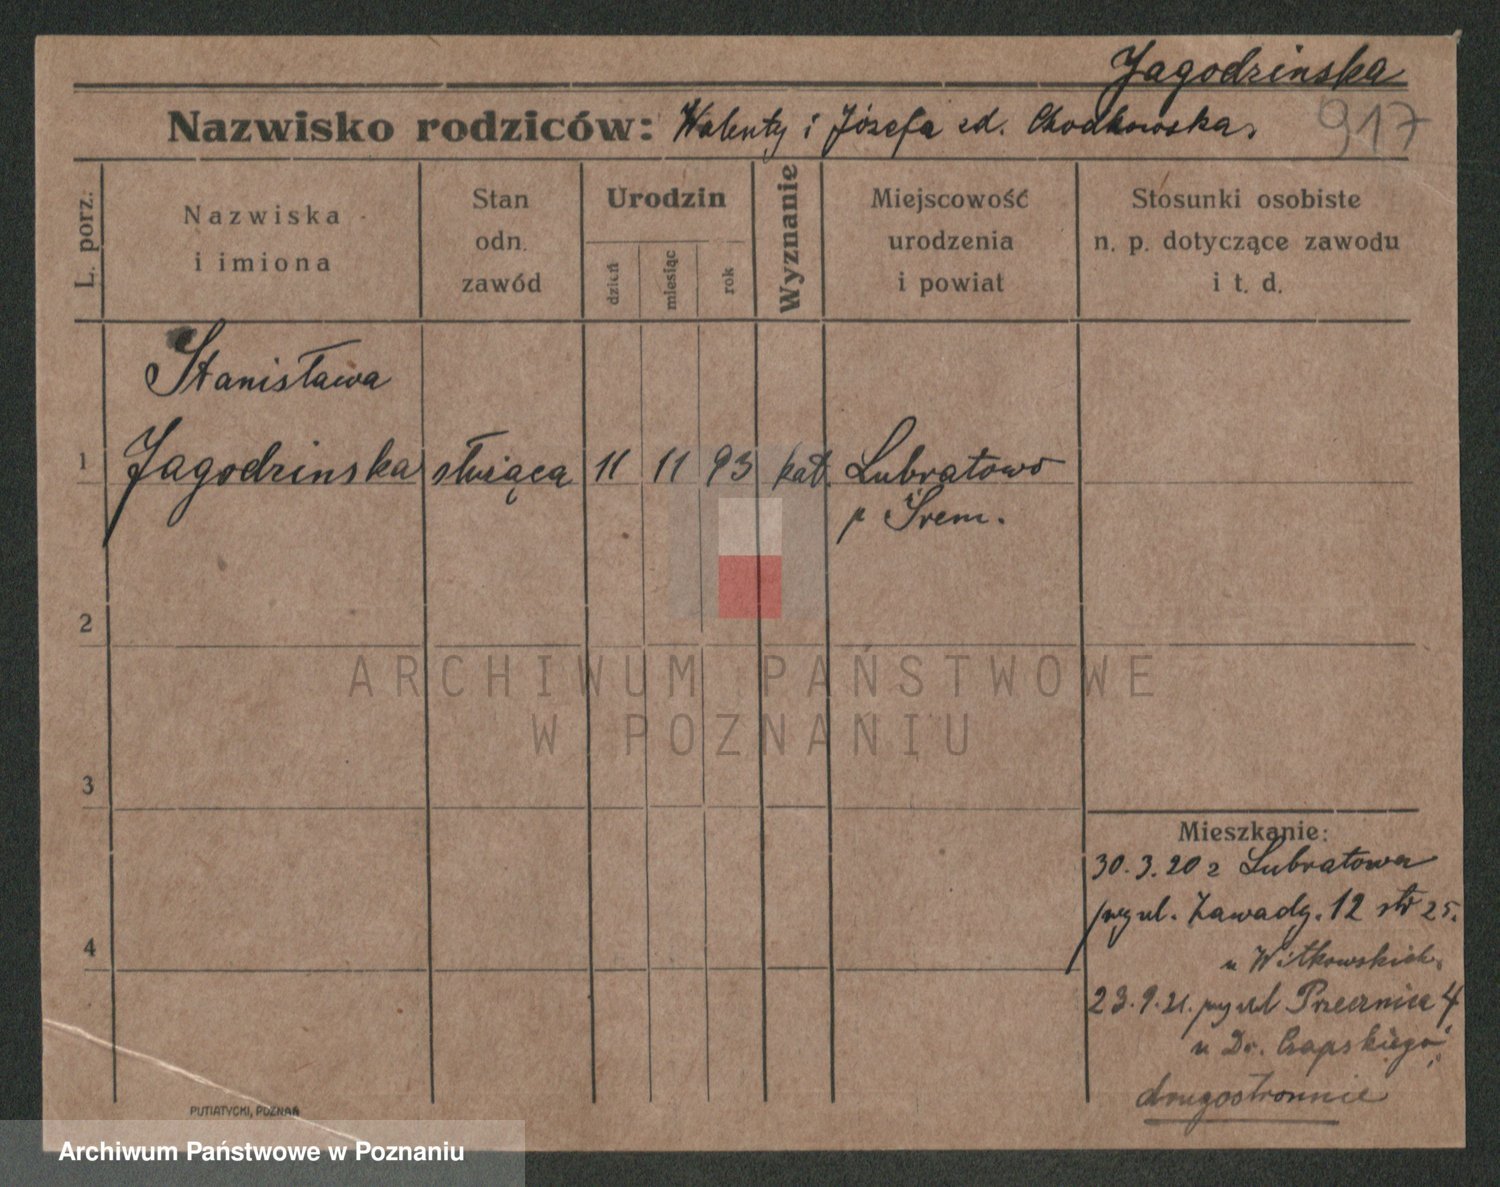 Jagodzinska
Nazwisko rodziców: Walenty i Józefa zd. Chodkowska.
917
L. porz.
Nazwiska
i imiona
Stan
odn.
zawód
Urodzin
dzień
miesiąc
rok
Wyznanie
Miejscowość
urodzenia
i powiat
Stosunki osobiste
n. p. dotyczące zawodu
i t. d.
Stanisława
1 Jagodzinska służąca 11 11 93 kat. Lubratowo
p Śrem.
2
ARCHIWUM PAŃSTWOWE
W POZNANIU
3
4
Mieszkanie:
30.3.20 z Lubratowa
przy ul. Zawady. 12 str 25.
u Witkowskich.
23.9.21. przy ul Przecznica 4
u Dr. Czapskiego
drugostronnie
PUTIATYCKI, POZNAŃ
Archiwum Państwowe w Poznaniu